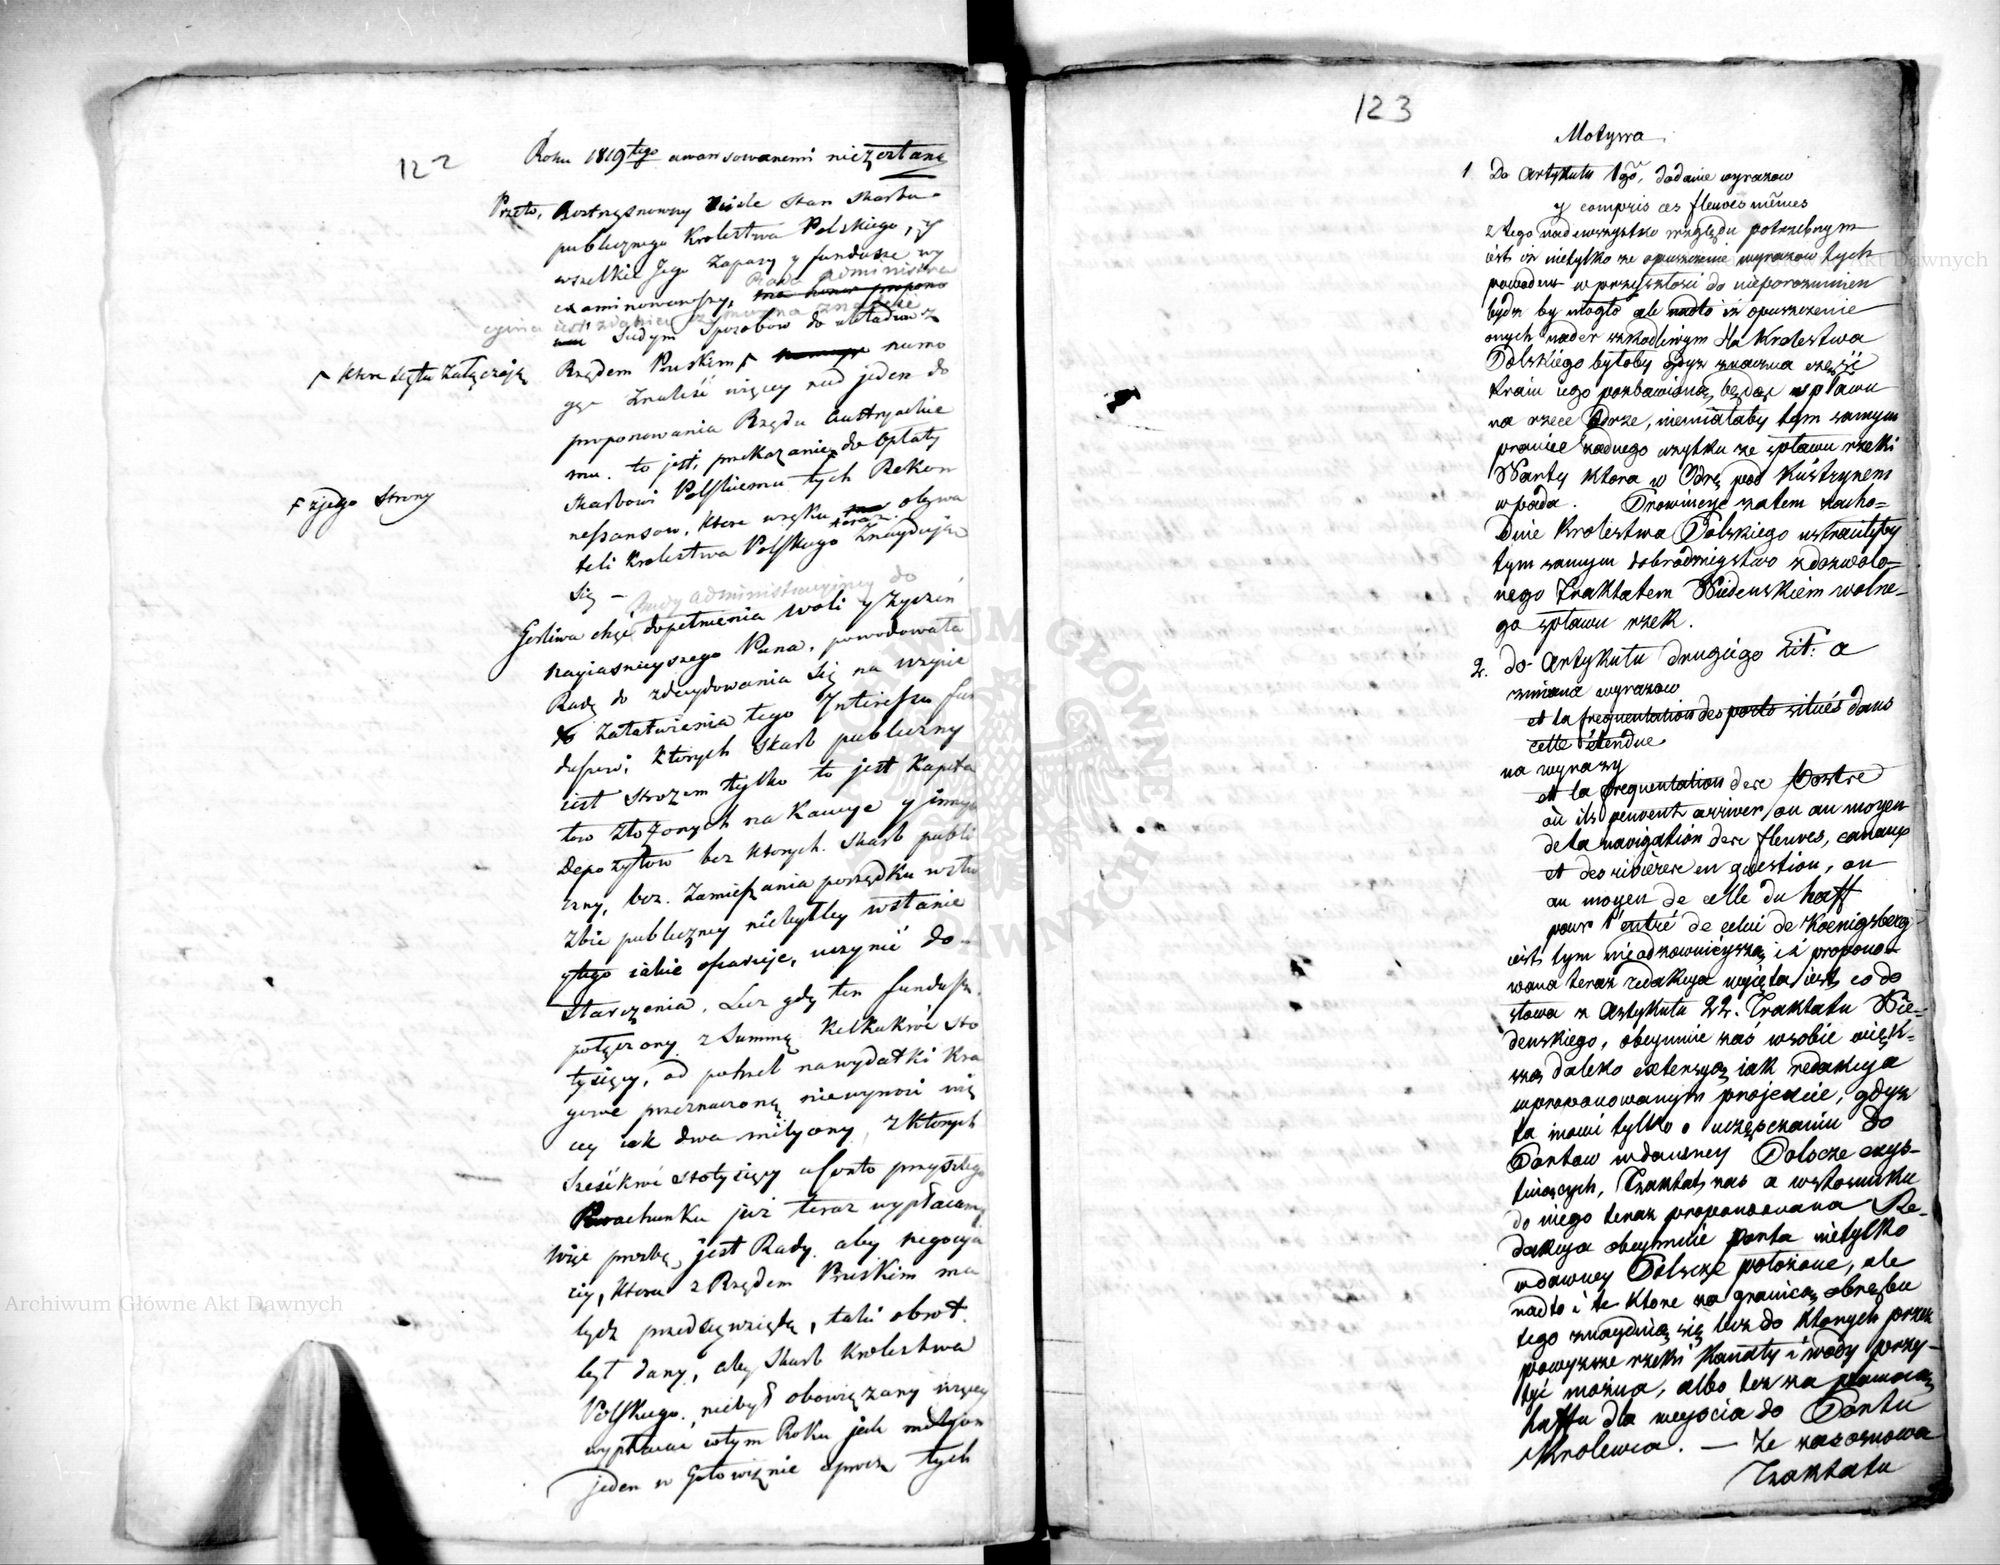 122
Roku 1819tego awansowanemi nie zostaną
Przeto, Roztrząsnowszy ściśle Stan Skarbu
publicznego Krolestwa Polskiego, y
wszelkie Jego Zapasy y fundusze wy
examinowawszy, Rada Administra
cyina iest zdania, ze mozna znaleść
Sposobów do układu z
Rządem Pruskim
⌈ ktore się tu załączają
gące Znaleść więcey nad jeden do
proponowania Rządu Austryackie
mu. to jest, przekazanie do opłaty
⌈ z jego Strony
Skarbowi Polskiemu tych Rekon
nessansow, ktore w ręku obywa
teli Krolestwa Polskiego teraz znayduią
się —
Rady Administracyiney do
Gorliwa chęć dopełnienia woli y Życzeń
Nayiasnieyszego Pana, powodowała
Radę do zdecydowania się na użycie
do załatwienia tego Interessu fun
duszow, ktorych Skarb publiczny
iest strozem tylko to jest Kapita
łow złożonych na Kaucye y innych
Depozytow bez ktorych Skarb publi
czny, bez Zamięszania porządku w słu
żbie publiczney niebyłby w stanie
tego iakie ofiaruje, uczynić do-
starczenia. Lecz gdy ten fundusz
połączony z Summą Kilkukroć sto
tysięcy, od potrzeb na wydatki Kra
jowe przeznaczoną niewynosi wię
cy iak dwa miliony, z ktorych
Sześćkroć stotysięcy a Conto przyszłego
Porachunku już teraz wypłacamy
więc prozbą jest Rady aby negocya
cyi, ktora z Rządem Pruskim ma
bydz przedsięwziętą, taki obrot
był dany, aby Skarb Krolestwa
Polskiego niebył obowiązany więcey
wypłacać w tym Roku jak milion
jeden w Gotowiznie oprocz tych
123
Motywa
1 Do Artykułu 1go, dodanie wyrazow
y compris ces fleuves mêmes
z tego nadewszystko względu potrzebnym
iest iż nietylko ze opuszczenie wyrazow tych
powodem w przyszłosci do nieporozumien
bydz by mogło ale nadto iż opuszczenie
onych nader szkodliwym dla Krolestwa
Polskiego byłoby gdyz znaczna część
kraiu iego pozbawioną będąc spławu
na rzece Odrze, niemiałaby tym samym
prawie zadnego uzytku ze spławu rzeki
Warty ktora w Odrę pod Kustrzynem
wpada. Prowincye zatem zacho=
dnie Krolestwa Polskiego ustraciłyby
tym samym dobrodzieystwo zdozwolo=
nego Traktatem Wiedenskiem wolne=
go spławu rzek.
2. do Artykułu drugiego Lit: a
zmiana wyrazow
et la frequentation des ports situés dans
cette étendue
na wyrazy
et la frequentation des Ports
où ils peuvent arriver, ou au moyen
de la navigation des fleuves, canaux
et des rivières en question, ou
au moyen de celle du haff
pour l'entré de celui de Koenigsberg
iest tym nieodzownieyszą iż propono=
wana teraz redakcya wyięta iest co do
słowa z Artykułu 22. Traktatu Wie=
denskiego, obeymuie zaś w sobie więk=
szą daleko extensyą iak redakcya
w proponowanym projekcie, gdyz
ta mowi tylko o uczęszczaniu do
Portow w dawney Polszcze exys=
tuiących, Traktat zas a w stosunku
do niego teraz proponowana Re=
dakcya obeymuie porta nietylko
w dawney Polszcze położone, ale
nadto i te ktore za granicą obrębu
tego znayduią się lecz do ktorych przez
powyzsze rzeki Kanały i wody przy=
być mozna, albo tez za pomocą
haffu dla weyscia do Portu
Krolewca. — Ze zas osnowa
Traktatu
Archiwum Główne Akt Dawnych